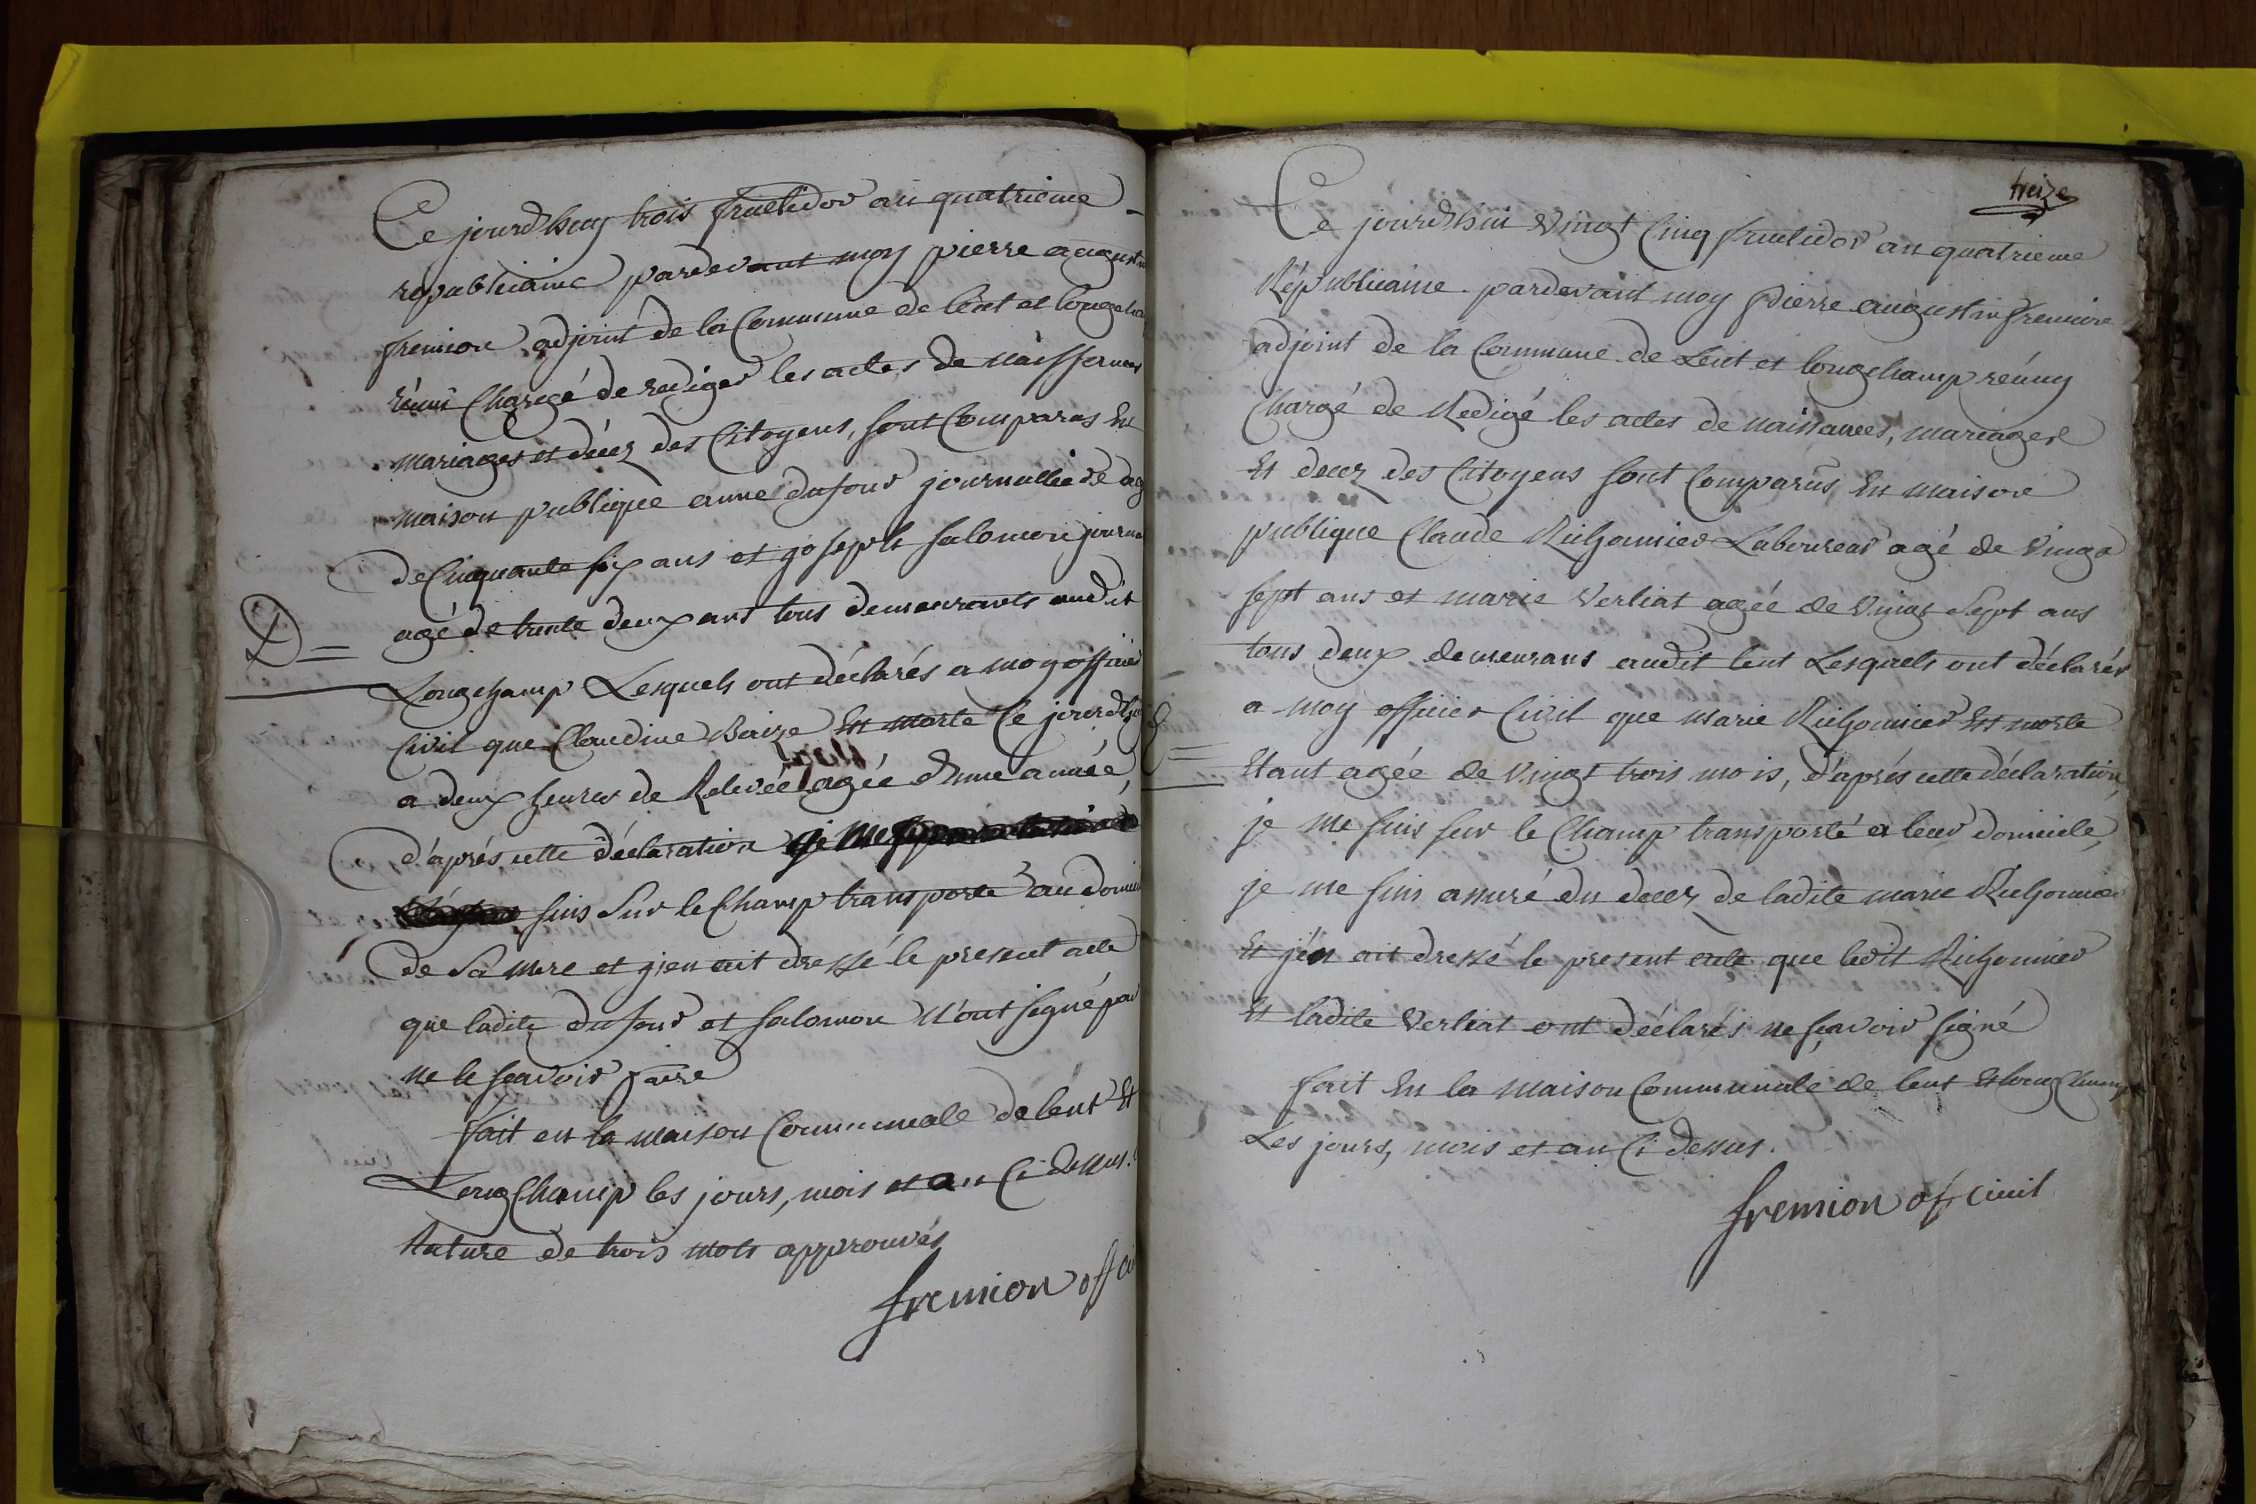 Ce jourd'huy trois fructidor an quatrieme
republicaine pardevant moy pierre augustin
fremion adjoint de la Commune de lent et longcha
réuni Chargé de rediger les actes de naissances
mariages et décez des Citoyens, sont Comparus En
maison publique anne dufour journalliere ag
de Cinquante six ans et joseph salomon journa
agé de trente deux ans tous demeurants audit
D=
Longchamp Lesquels ont déclarés a moy officier
Civil que Claudine Baize Est morte Ce jourdhuy
a deux heures de Relevée agée d'une année,
d'aprés cette déclaration je me
suis Sur le Champ transporté au domicil
de Sa mere et j'en ait dressé le present acte
que ladite dufour et salomon n'ont signé pour
ne le sçavoir faire
fait en la maison Communale de lent Et
LongChamp les jours, mois et an Ci dessus.
Rature de trois mots approuvés
fremion off ci
treize
Ce jourd'hui Vingt Cinq fructidor an quatrieme
Républicaine pardevant moy Pierre augustin fremion
adjoint de la Commune de Lent et longchamp réuny
Chargé de Redigé les actes de naissances, mariages
Et decez des Citoyens sont Comparus En maison
publique Claude Richonnier Laboureur agé de Vingt
sept ans et marie Verliat agée de Vingt Sept ans
tous deux demeurans audit lent Lesquels ont déclarés
a moy officier Civil que marie Richonnier Est morte
D=
Etant agée de Vingt trois mois, d'aprés cette déclaration,
je me suis sur le Champ transporté a leur domicile,
je me suis assuré du decez de ladite marie Richonnier
Et j'en ait dressé le present acte que ledit Richonnier
Et ladite Verliat ont déclarés ne sçavoir signé
fait En la maison Communale de lent Et longChamp
Les jours, mois et an Ci dessus.
fremion of civil